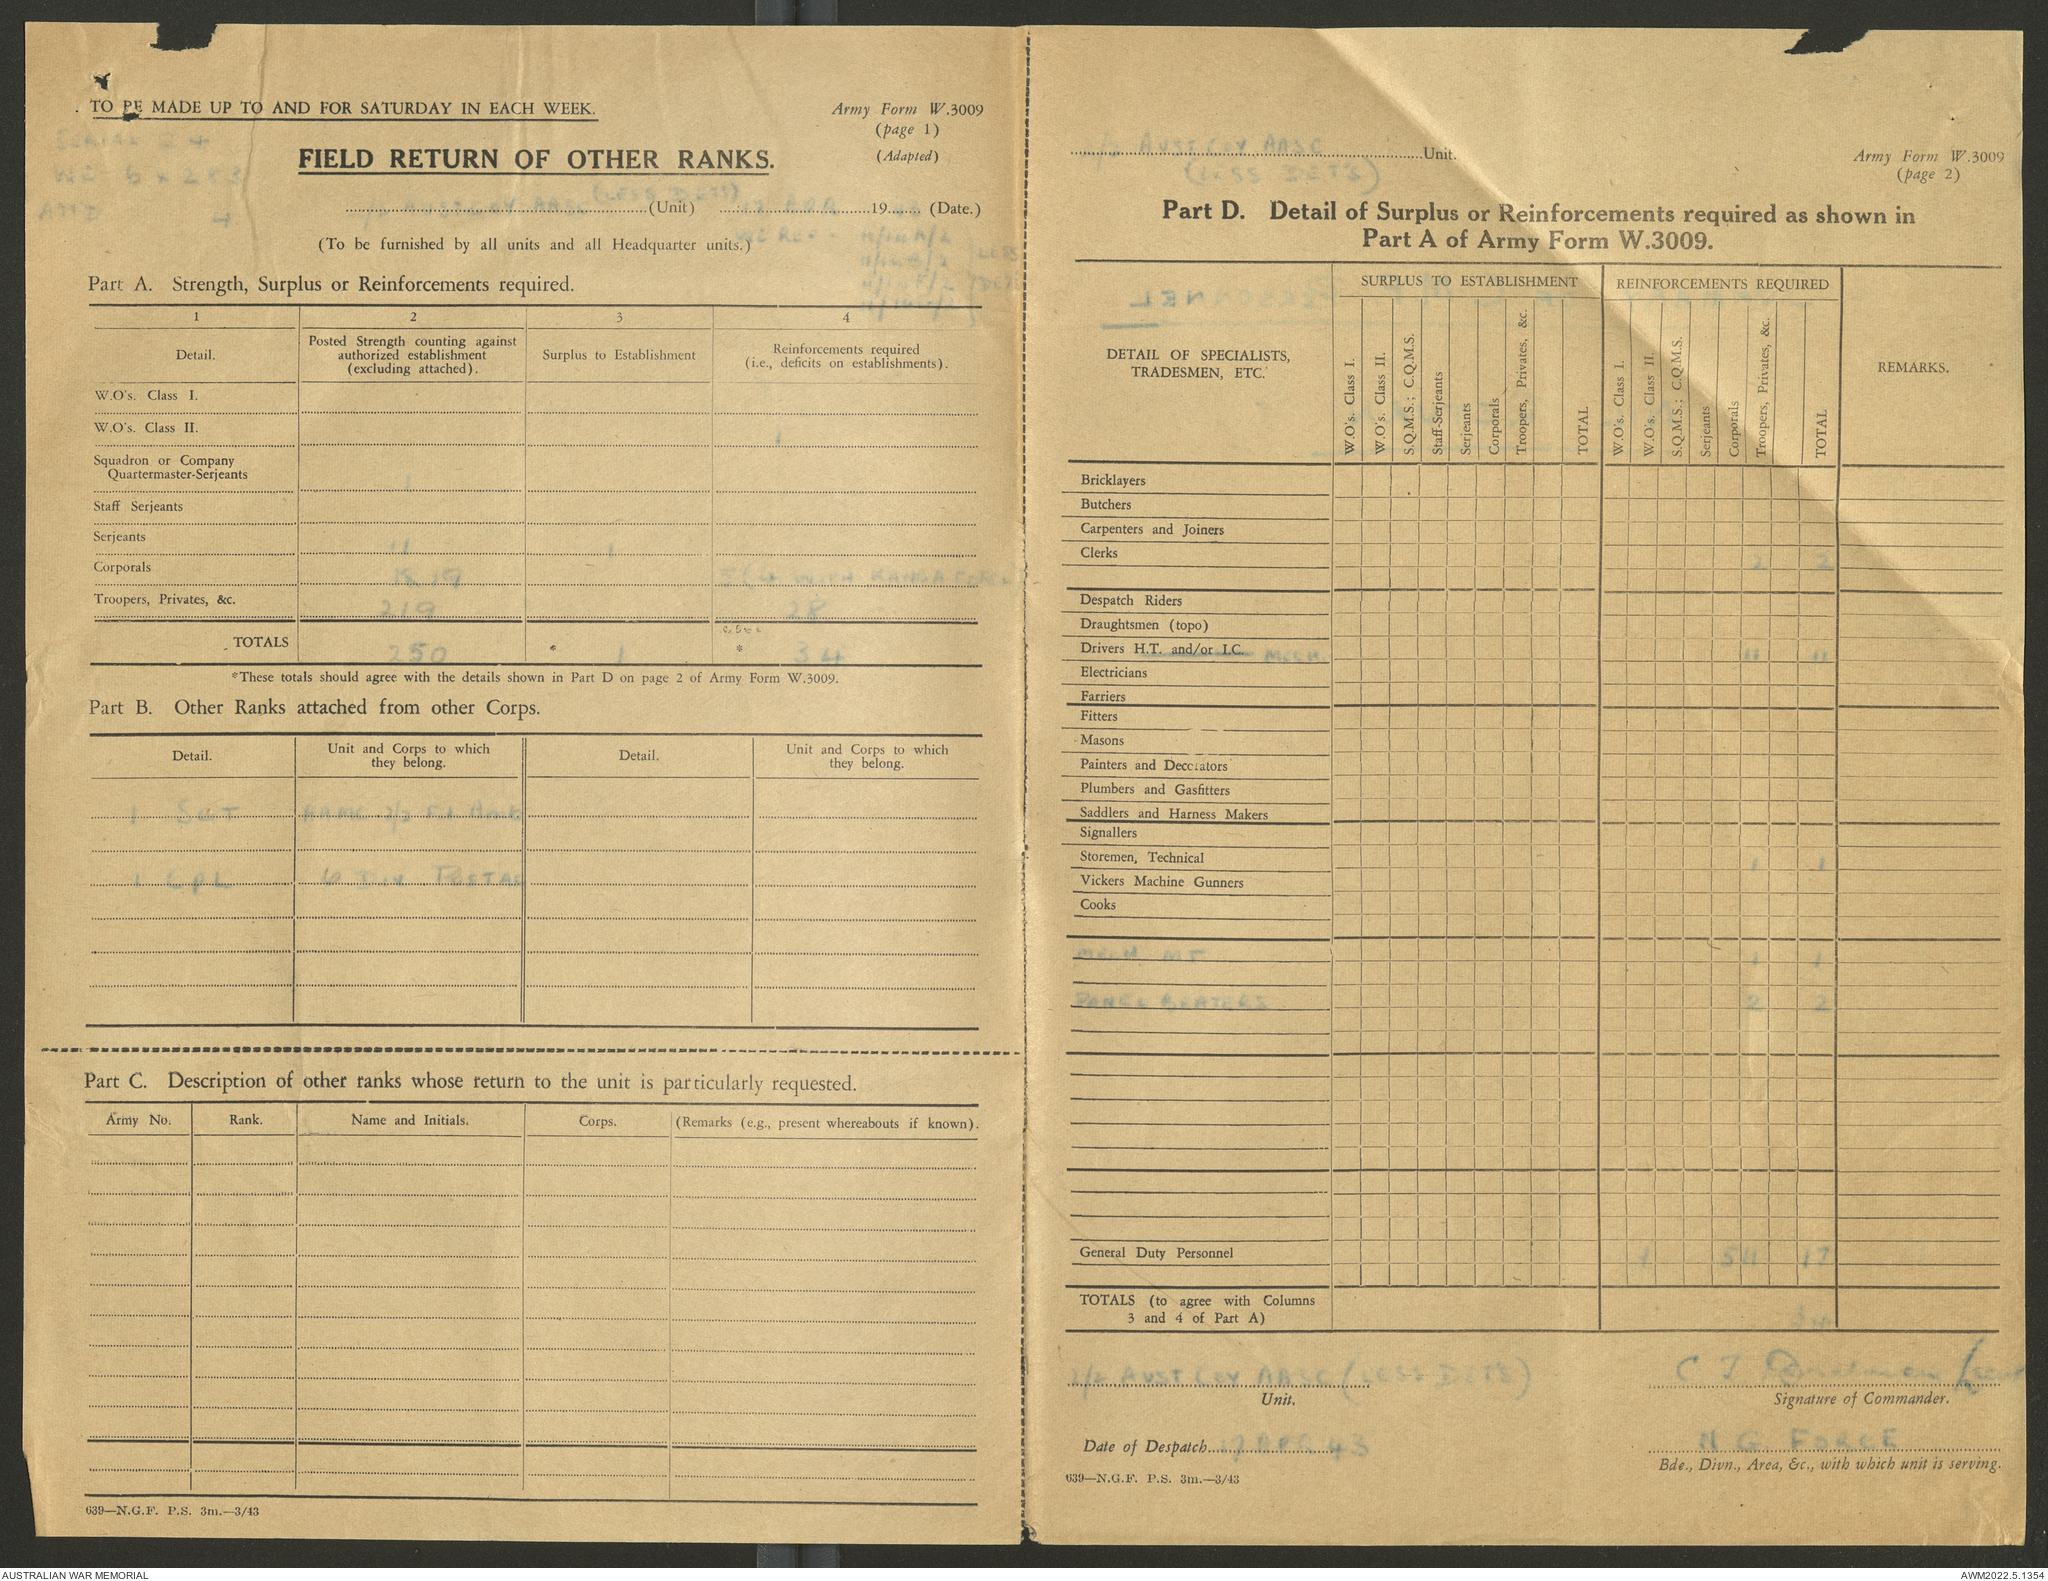 TO BE MADE UP TO AND FOR SATURDAY IN EACH WEEK.
Army Form W.3009
(page 1)
(Adapted)
SERIAL 24
WE 6 x 283
ATTD 4
FIELD RETURN OF OTHER RANKS.
(LESS DETS)
AUST COY AASC (Unit) 17 APR 19 43 (Date.)
(To be furnished by all units and all Headquarter units.)
WE REF -
LESS
DETS
Part A. Strength, Surplus or Reinforcements required.
1 2 3 4
Detail. Posted Strength counting against authorized establishment (excluding attached). Surplus to Establishment Reinforcements required (i.e., deficits on establishments).
W.O's. Class I.
W.O's. Class II. 1
Squadron or Company
Quartermaster-Serjeants 1
Staff Serjeants
Serjeants 11 1
Corporals 19 5 (4 WITH KANGA FORCE)
Troopers, Privates, &c. 219 28
TOTALS 250 * 1 * 34
*These totals should agree with the details shown in Part D on page 2 of Army Form W.3009.
Part B. Other Ranks attached from other Corps.
Detail. Unit and Corps to which they belong. Detail. Unit and Corps to which they belong.
1 SGT AAMC 2/2 Fd Amb
1 CPL 6 DIV POSTAL
Part C. Description of other ranks whose return to the unit is particularly requested.
Army No. Rank. Name and Initials. Corps. (Remarks (e.g., present whereabouts if known).
639—N.G.F. P.S. 3m.—3/43
AUST COY AASC Unit.
(LESS DETS)
Army Form W.3009
(page 2)
Part D. Detail of Surplus or Reinforcements required as shown in
Part A of Army Form W.3009.
DETAIL OF SPECIALISTS, TRADESMEN, ETC. SURPLUS TO ESTABLISHMENT REINFORCEMENTS REQUIRED REMARKS.
W.O's. Class I. W.O's. Class II. S.Q.M.S.; C.Q.M.S. Staff-Serjeants Serjeants Corporals Troopers, Privates, &c. TOTAL W.O's. Class I. W.O's. Class II. S.Q.M.S.; C.Q.M.S. Serjeants Corporals Troopers, Privates, &c. TOTAL
Bricklayers
Butchers
Carpenters and Joiners
Clerks 2 2
Despatch Riders
Draughtsmen (topo)
Drivers H.T. and/or I.C. MECH. 11 11
Electricians
Farriers
Fitters
Masons
Painters and Decorators
Plumbers and Gasfitters
Saddlers and Harness Makers
Signallers
Storemen, Technical 1 1
Vickers Machine Gunners
Cooks
MECH MT 1 1
PANEL BEATERS 2 2
General Duty Personnel 1 5 11 17
TOTALS (to agree with Columns
3 and 4 of Part A) 34
AUST COY AASC (LESS DETS)
Unit.
C J
Signature of Commander.
Date of Despatch 17 APR 43
N G FORCE
Bde., Divn., Area, &c., with which unit is serving.
639—N.G.F. P.S. 3m.—3/43
AUSTRALIAN WAR MEMORIAL
AWM2022.5.1354